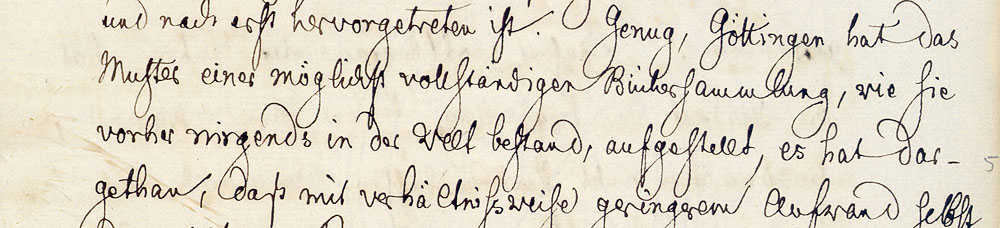 und nach erst hervorgetreten ist. Genug, Göttingen hat das
Muster einer möglichst vollständigen Büchersammlung, wie sie
vorher nirgends in der Welt bestand, aufgestellt, es hat dar-
gethan, daß mit verhältnißweise geringerem Aufwand selbst